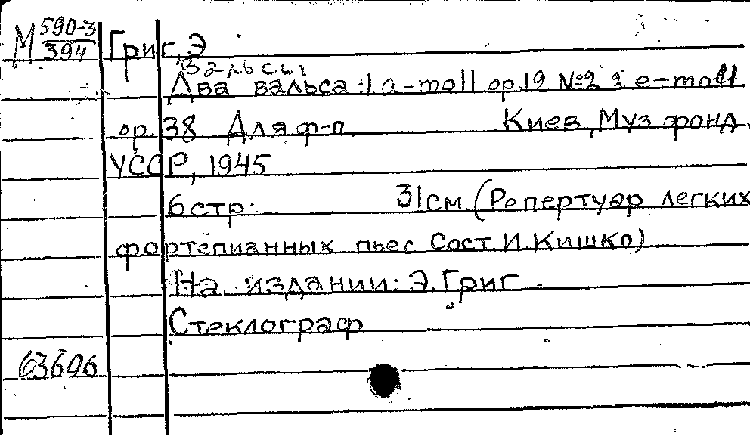 М 590-3
394
Григ, Э
Вальсы
Два вальса: 1 a-moll op.12 №2 2 e-moll
ор. 38 Для ф-п. Киев, Муз фонд.
УССР, 1945
6 стр. 31 см (Репертуар легких
фортепианных пьес Сост. И. Кишко)
На издании: Э. Григ
Стеклограф
63606